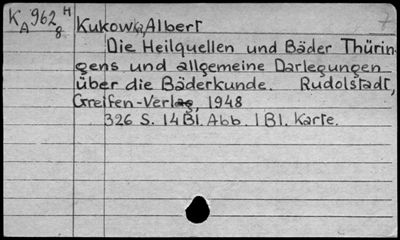 K A 962 8 H
Kukowka, Albert
Die Heilquellen und Bäder Thürin-
gens und allgemeine Darlegungen
über die Bäderkunde. Rudolstadt,
Greifen-Verlag, 1948
326 S. 14 Bl. Abb. 1 Bl. Karte.